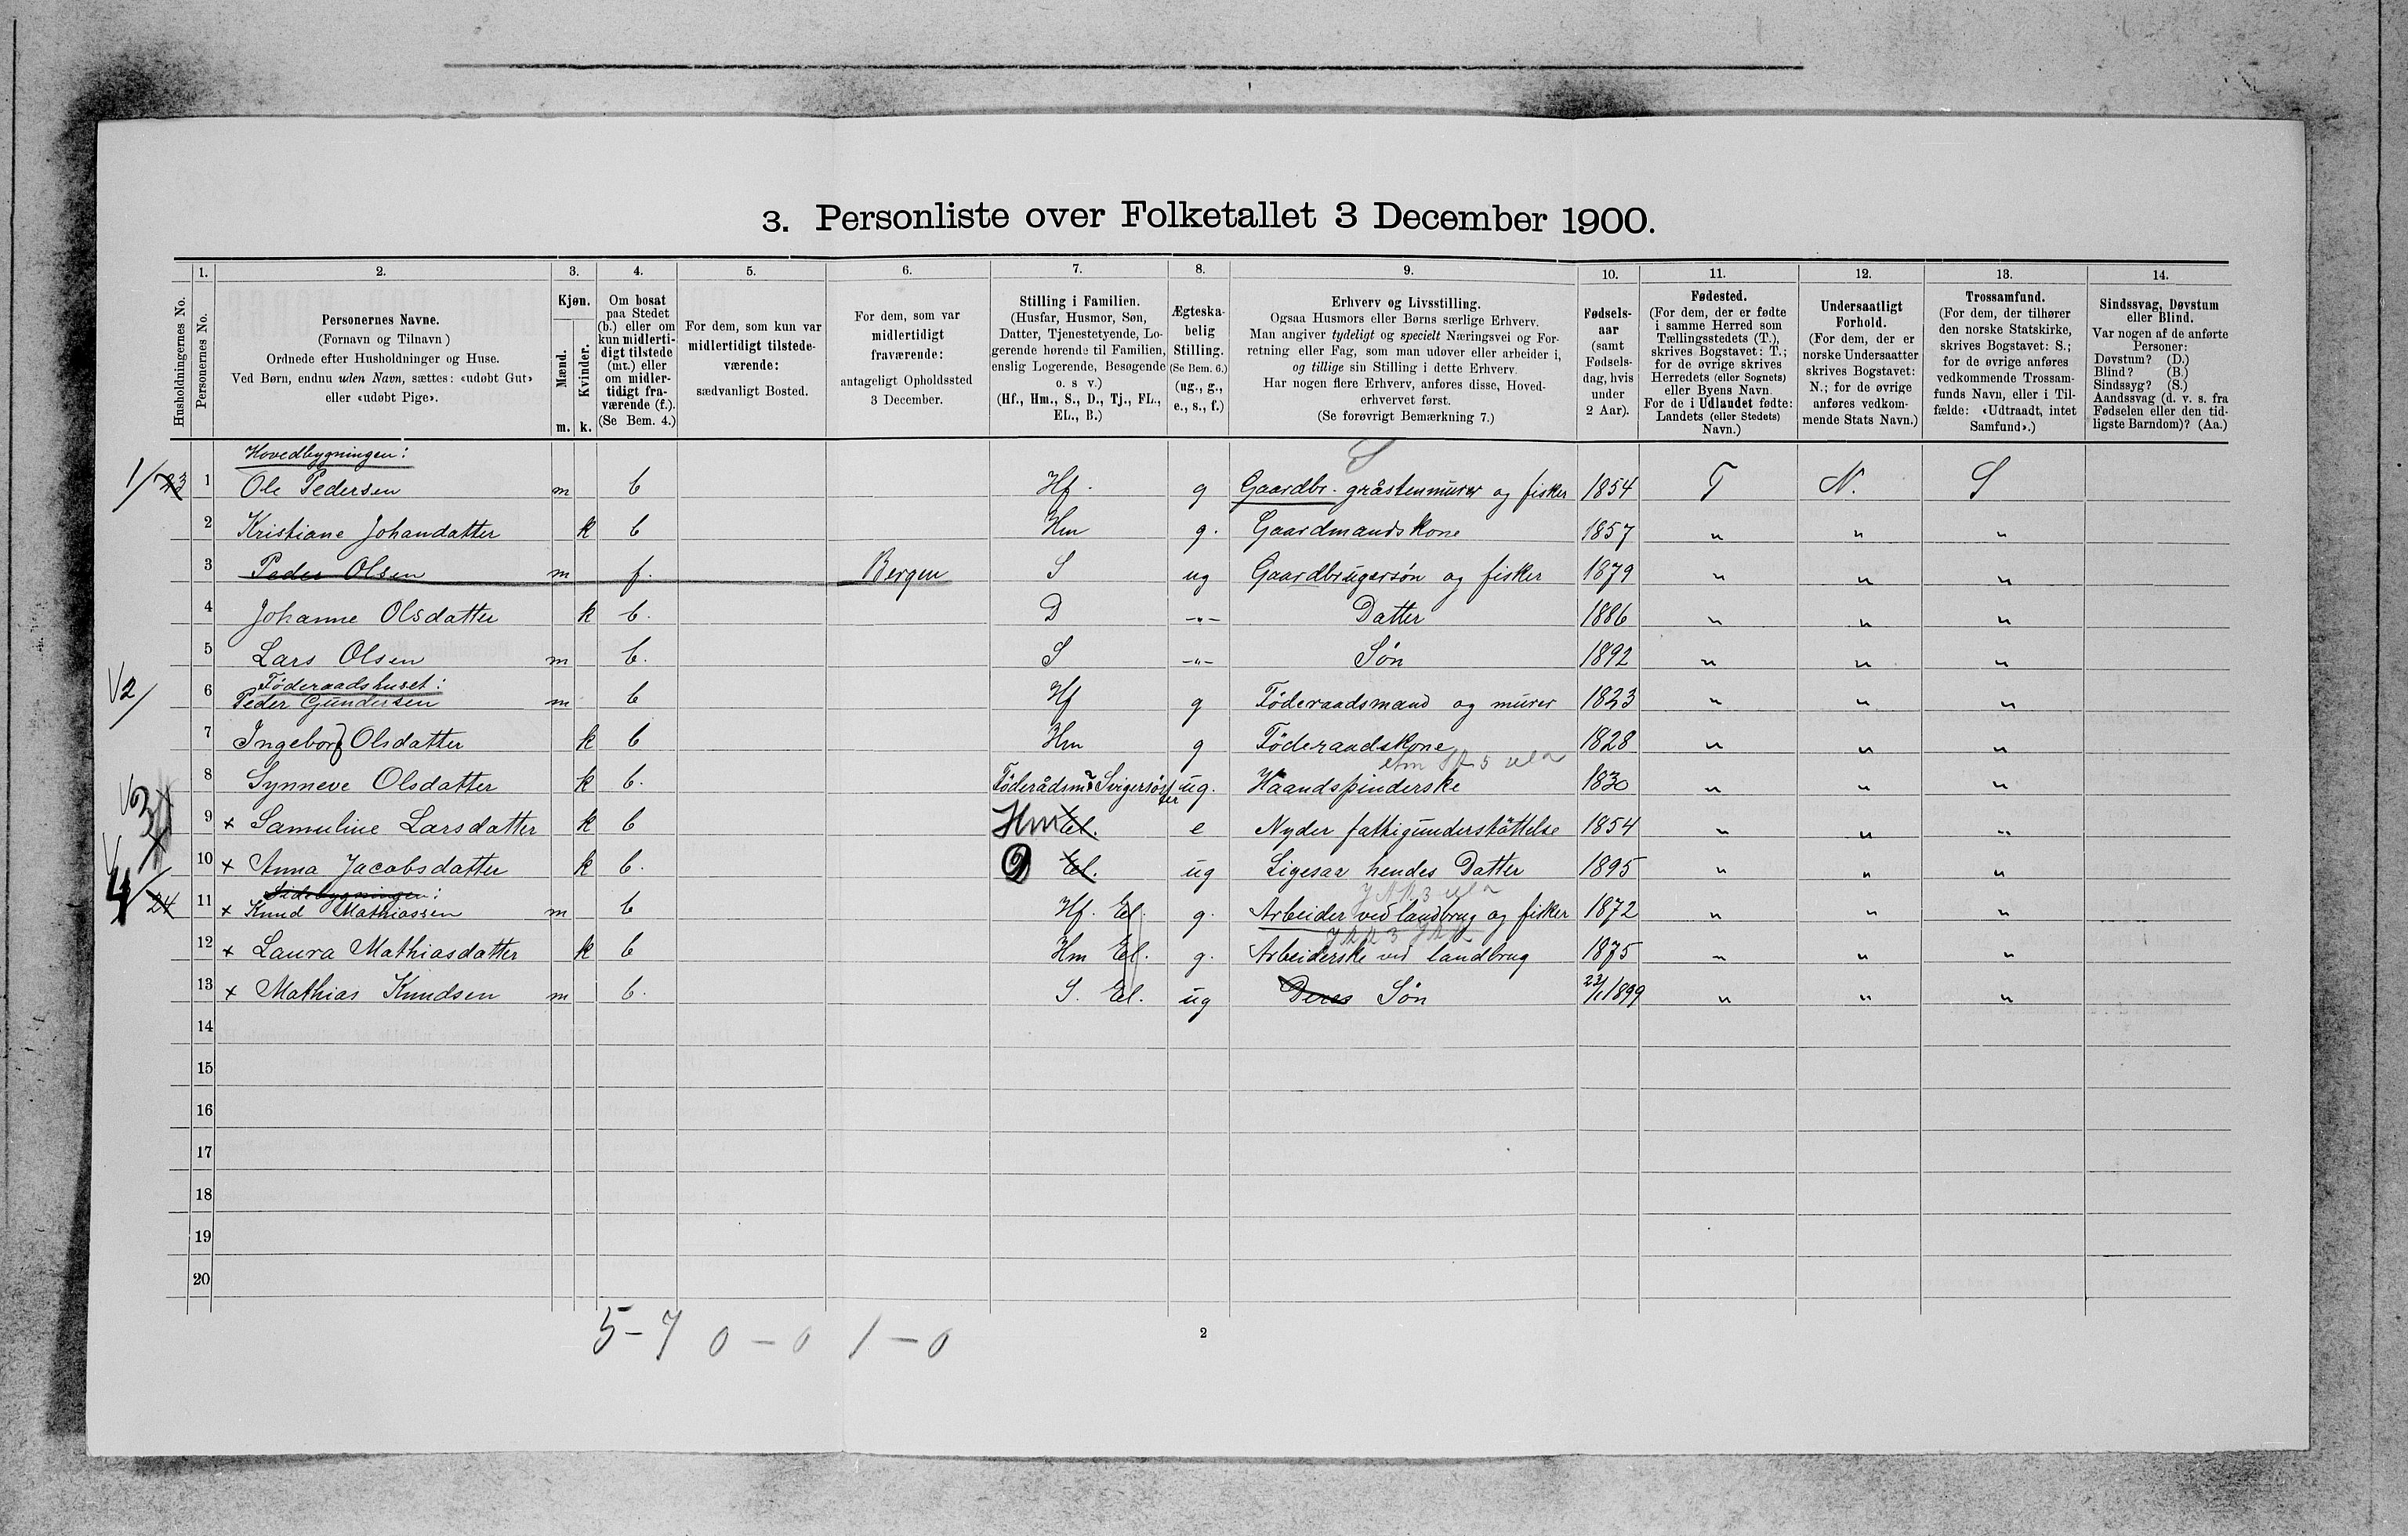 3. Personliste over Folketallet 3 December 1900.
Husholdningernes No.
1.
Personernes No.
2.
Personernes Navne.
(Fornavn og Tilnavn)
Ordnede efter Husholdninger og Huse.
Ved Børn, endnu uden Navn, sættes: «udøbt Gut»
eller «udøbt Pige».
3.
Kjøn.
Mænd.
Kvinder.
m. k.
4.
Om bosat
paa Stedet
(b.) eller om
kun midlerti-
digt tilstede
(mt.) eller
om midler-
tidigt fra-
værende (f.).
(Se Bem. 4.)
5.
For dem, som kun var
midlertidigt tilstede-
værende:
sædvanligt Bosted.
6.
For dem, som var
midlertidigt
fraværende:
antageligt Opholdssted
3 December.
7.
Stilling i Familien.
(Husfar, Husmor, Søn,
Datter, Tjenestetyende, Lo-
gerende hørende til Familien,
enslig Logerende, Besøgende
o. s v.)
(Hf., Hm., S., D., Tj., FL.,
EL., B.)
8.
Ægteska-
belig
Stilling.
(Se Bem. 6.)
(ug., g.,
e., s., f.)
9.
Erhverv og Livsstilling.
Ogsaa Husmors eller Børns særlige Erhverv.
Man angiver tydeligt og specielt Næringsvei og For-
retning eller Fag, som man udøver eller arbeider i,
og tillige sin Stilling i dette Erhverv.
Har nogen flere Erhverv, anføres disse, Hoved-
erhvervet først.
(Se forøvrigt Bemærkning 7.)
10.
Fødsels-
aar
(samt
Fødsels-
dag, hvis
under
2 Aar).
11.
Fødested.
(For dem, der er fødte
i samme Herred som
Tællingsstedets (T.),
skrives Bogstavet: T.;
for de øvrige skrives
Herredets (eller Sognets)
eller Byens Navn.
For de i Udlandet fødte:
Landets (eller Stedets)
Navn.)
12.
Undersaatligt
Forhold.
(For dem, der er
norske Undersaatter
skrives Bogstavet:
N.; for de øvrige
anføres vedkom-
mende Stats Navn.)
13.
Trossamfund.
(For dem, der tilhører
den norske Statskirke,
skrives Bogstavet: S.;
for de øvrige anføres
vedkommende Trossam-
funds Navn, eller i Til-
fælde: «Udtraadt, intet
Samfund».)
14.
Sindssvag, Døvstum
eller Blind.
Var nogen af de anførte
Personer:
Døvstum? (D.)
Blind? (B.)
Sindssyg? (S.)
Aandssvag (d. v. s. fra
Fødselen eller den tid-
ligste Barndom)? (Aa.)
Hovedbygningen:
1/ 23 1 Ole Pedersen m b Hf. g Gaardbr. gråstenmurer og fisker 1854 T N. S
2 Kristiane Johandatter k b Hm g. Gaardmandskone 1857 " " "
3 Peder Olsen m f. Bergen S ug Gaardbrugersøn og fisker 1879 " " "
4 Johanne Olsdatter k b. D -"- Datter 1886 " " "
5 Lars Olsen m b. S -"- Søn 1892 " " "
Föderaadshuset:
V2/ 6 Peder Gundersen m b Hf g Föderaadsmand og murer 1823 " " "
7 Ingeborg Olsdatter k b Hm g Föderaadskone 1828 " " "
8 Synneve Olsdatter k b. Föderådsm Svigersøster ug. Haandspinderske 1830 " " "
V3 9 x Samuline Larsdatter k b Hm El. e Nyder fattigunderstøttelse 1854 " " "
10 x Anna Jacobsdatter k b. D El. ug Ligesaa hendes Datter 1895 " " "
Sidebygningen:
4/ 24 11 x Knud Mathiassen m b Hf. El. g. Arbeider ved landbrug og fisker 1872 " " "
12 x Laura Mathiasdatter k b Hm El. g. Arbeiderske ved landbrug 1875 " " "
13 x Mathias Knudsen m b. S. El. ug Deres Søn 23/1 1899 " " "
14
15
16
17
18
19
20
5-7 0-0 1-0
2